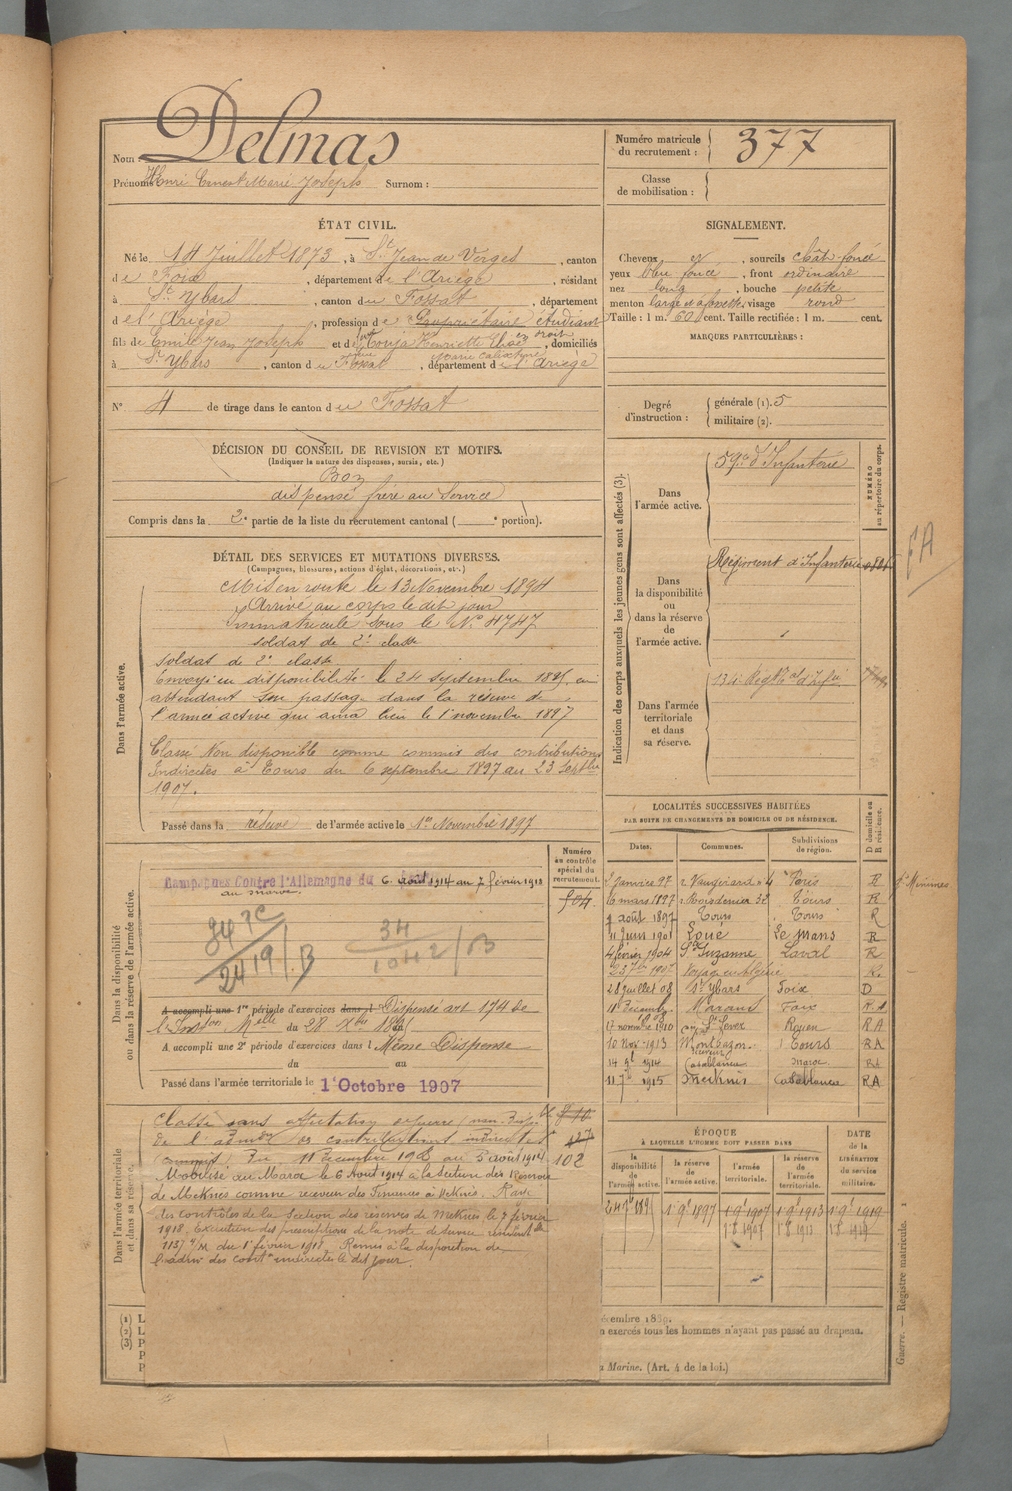 Nom : Delmas
Prénoms : Henri Ernest Marie Joseph Surnom :
Numéro matricule du recrutement : 377
Classe de mobilisation :
ÉTAT CIVIL.
Né le 14 Juillet 1873, à St Jean de Verges, canton
de Foix, département de l'Ariège, résidant
à St Ybars, canton du Fossat, département
de l'Ariège, profession de Propriétaire étudiant en droit
fils de Emile Jean Joseph et de Henriette Elise Marie Calixtine, domiciliés
à St Ybars, canton du Fossat, département de l'Ariège
N° 4 de tirage dans le canton du Fossat
SIGNALEMENT.
Cheveux et sourcils chât. foncé
yeux bleu foncé, front ordinaire
nez long, bouche petite
menton large et à fossette visage rond
Taille : 1 m. 60 cent. Taille rectifiée : 1 m. cent.
MARQUES PARTICULIÈRES :
Degré d'instruction : générale (1). 5
militaire (2).
DÉCISION DU CONSEIL DE REVISION ET MOTIFS.
(Indiquer la nature des dispenses, sursis, etc.)
Bon
dispensé frère au service
Compris dans la 2e partie de la liste du recrutement cantonal ( e portion).
DÉTAIL DES SERVICES ET MUTATIONS DIVERSES.
(Campagnes, blessures, actions d'éclat, décorations, etc.)
Dans l'armée active.
Mis en route le 13 Novembre 1894
Arrivé au corps le dit jour
Immatriculé sous le N° 4747
soldat de 2e classe
soldat de 2e classe
Envoyé en disponibilité le 24 septembre 1895 en
attendant son passage dans la réserve de
l'armée active qui aura lieu le 1er novembre 1897
Classé Non disponible comme commis des contributions
Indirectes à Tours du 6 septembre 1897 au 23 septbre
1907.
Passé dans la réserve de l'armée active le 1er Novembre 1897
Indication des corps auxquels les jeunes gens sont affectés (3).
Dans l'armée active.
59e d'Infanterie
NUMÉRO au répertoire du corps.
Dans la disponibilité ou dans la réserve de l'armée active.
Régiment d'Infanterie
FA
Dans l'armée territoriale et dans sa réserve.
134 Regt d'Infie
LOCALITÉS SUCCESSIVES HABITÉES
PAR SUITE DE CHANGEMENTS DE DOMICILE OU DE RÉSIDENCE.
Dates. Communes. Subdivisions de région. D domicile ou R résidence.
Janvier 97 r. Vaugirard 4 Paris R
6 mars 1897 r. Boisdenier 32 Tours R
7 août 1897 Tours Tours R
11 juin 1901 Loué Le Mans R
4 février 1904 Ste Suzanne Laval R
1907 Voyage en Algérie R.
28 juillet 08 St Ybars Foix D
Marans Foix
17 novembre 1910 Rouen RA
10 Nov. 1913 Montbazon. Tours RA
receveur
14 1914 Casablanca Maroc RA
1915 Meknès Casablanca RA
Dans la disponibilité ou dans la réserve de l'armée active.
Numéro au contrôle spécial du recrutement.
904
Campagnes Contre l'Allemagne du 6 août 1914 au 7 février 1918
au Maroc.
34
A accompli une 1re période d'exercices dans l Dispensé art 174 de
l'Inston Melle du 28 Xbre
A accompli une 2e période d'exercices dans l Même Dispense
du au
Passé dans l'armée territoriale le 1er Octobre 1907
Dans l'armée territoriale et dans sa réserve.
Classé sans affectation
de l'admon des contributions indirectes
(commis) Du 11 Décembre au 5 août 1914
102
Mobilisé au Maroc le 6 Août 1914 à la Section des Réserves
de Meknès comme receveur des Finances à Meknès. Rayé
des contrôles de la Section des réserves de Meknès le 7 février
1918. Exécution des prescriptions de la note de service
1137 du 1er février 1918. Remis à la disposition de
l'admn des contns indirectes le dit jour.
ÉPOQUE
À LAQUELLE L'HOMME DOIT PASSER DANS
la disponibilité de l'armée active. la réserve de l'armée active. l'armée territoriale. la réserve de l'armée territoriale.
DATE de la LIBÉRATION du service militaire.
1er 9bre 1897 1er 9bre 1907 1er 9bre 1913 1er 9bre 1919
1907 1913 1919
(1) L
(2) L
(3) P
n exercés tous les hommes n'ayant pas passé au drapeau.
Marine. (Art. 4 de la loi.)
Guerre. — Registre matricule. 1